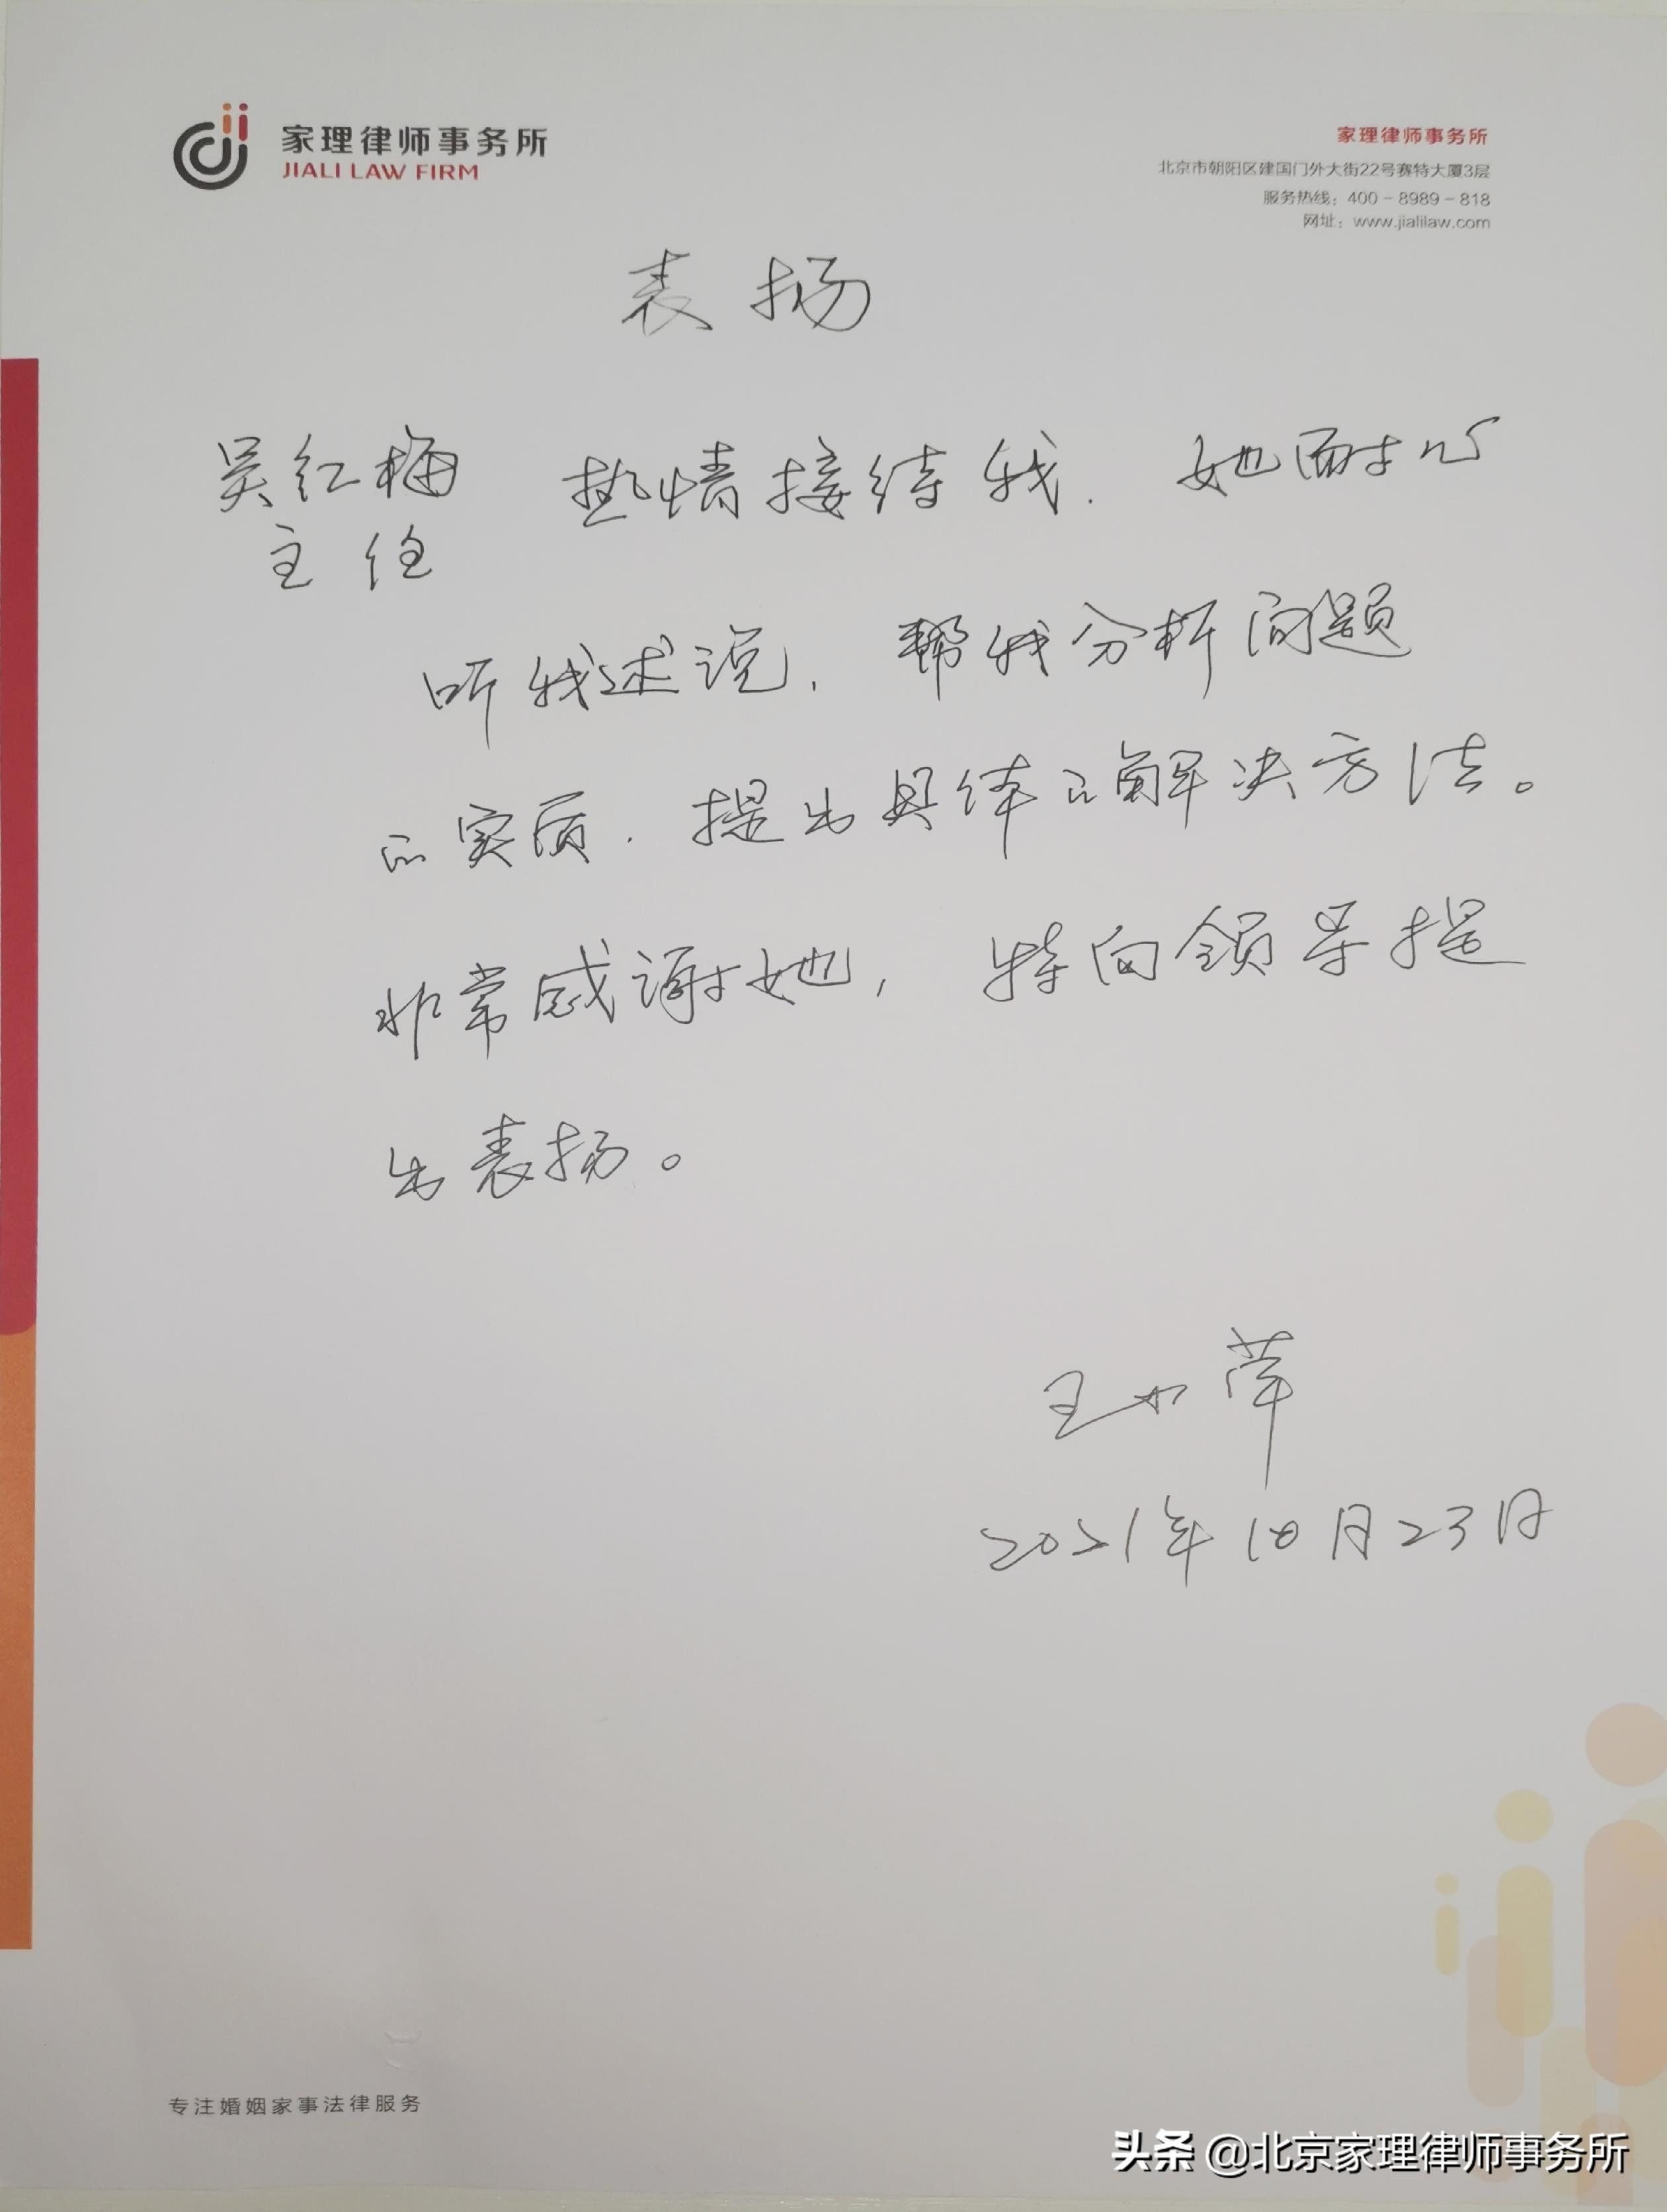 家理律师事务所
JIALI LAW FIRM
家理律师事务所
北京市朝阳区建国门外大街22号赛特大厦3层
服务热线：400-8989-818
网址：www.jialilaw.com
表扬
吴红梅 热情接待我. 她耐心
主任
听我述说, 帮我分析问题
的实质. 提出具体的解决方法。
非常感谢她, 特向领导提
出表扬。
王
2021年10月23日
专注婚姻家事法律服务
头条 @北京家理律师事务所